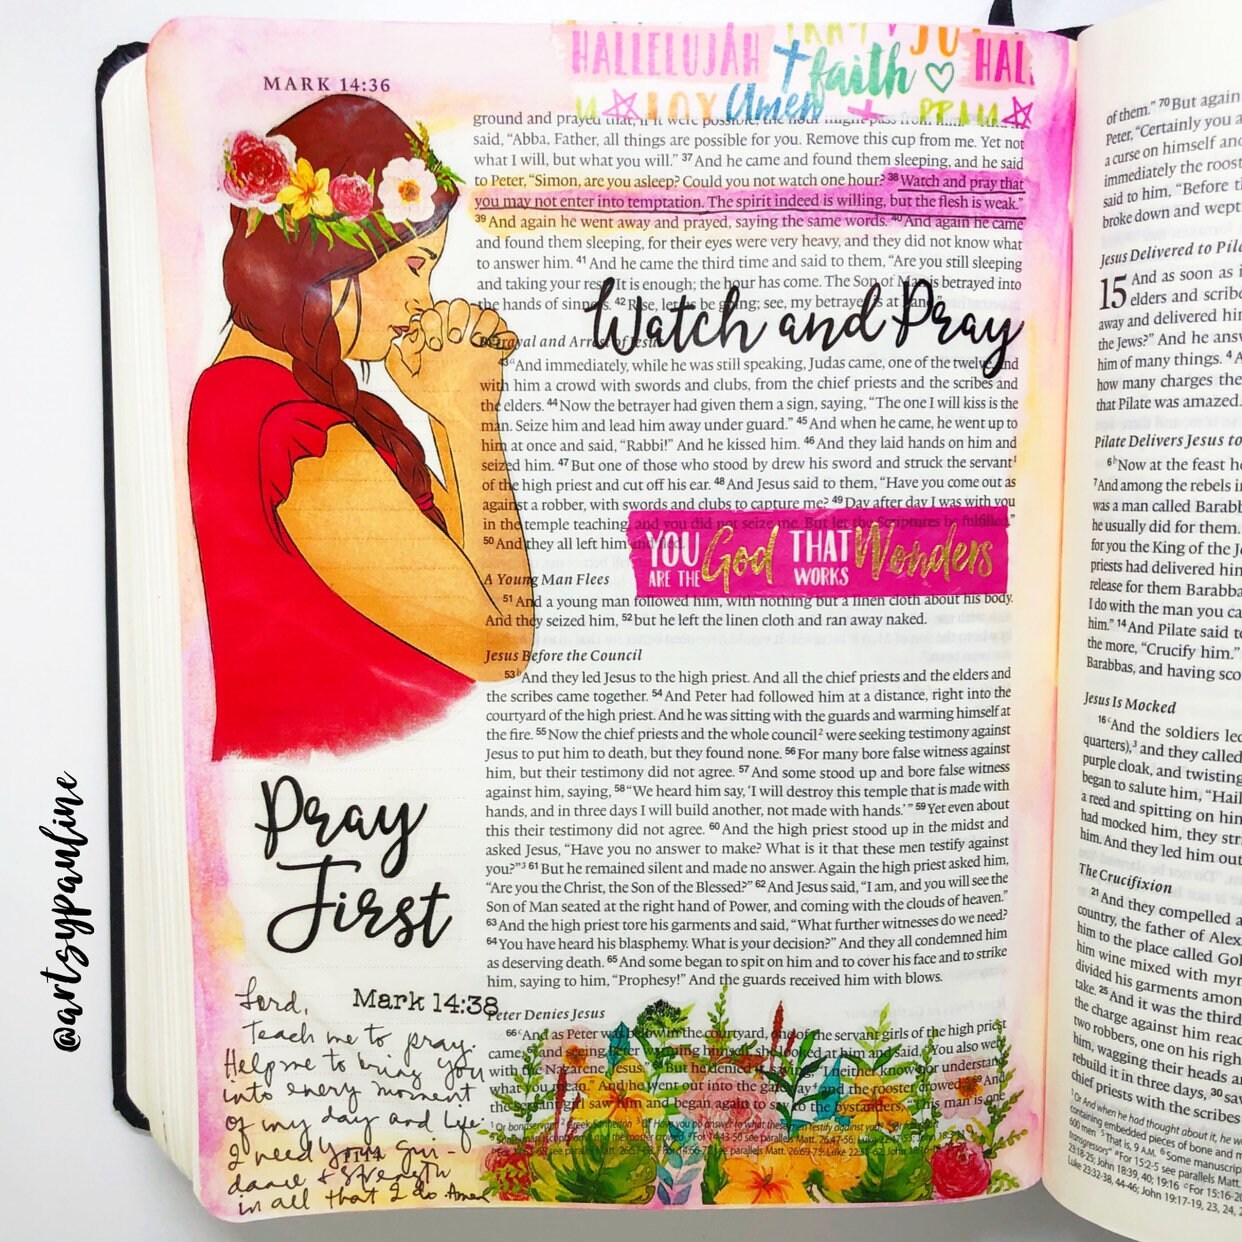 HALLELUJAH faith HAL
JOY Amen PRAY
MARK 14:36
said, “Abba, Father, all things are possible for you. Remove this cup from me. Yet not
what I will, but what you will.” 37 And he came and found them sleeping, and he said
to Peter, “Simon, are you asleep? Could you not watch one hour? 38 Watch and pray that
you may not enter into temptation. The spirit indeed is willing, but the flesh is weak.”
39 And again he went away and prayed, saying the same words. 40 And again he came
and found them sleeping, for their eyes were very heavy, and they did not know what
to answer him. 41 And he came the third time and said to them, “Are you still sleeping
and taking your rest? It is enough; the hour has come. The Son of Man is betrayed into
the hands of sinners. 42 Rise, let us be going; see, my betrayer is at hand.”
Watch and Pray
Betrayal and Arrest of Jesus
43 And immediately, while he was still speaking, Judas came, one of the twelve, and
with him a crowd with swords and clubs, from the chief priests and the scribes and
the elders. 44 Now the betrayer had given them a sign, saying, “The one I will kiss is the
man. Seize him and lead him away under guard.” 45 And when he came, he went up to
him at once and said, “Rabbi!” And he kissed him. 46 And they laid hands on him and
seized him. 47 But one of those who stood by drew his sword and struck the servant1
of the high priest and cut off his ear. 48 And Jesus said to them, “Have you come out as
against a robber, with swords and clubs to capture me? 49 Day after day I was with you
in the temple teaching, and you did not seize me. But let the Scriptures be fulfilled.”
50 And they all left him and fled.
YOU ARE THE God THAT WORKS Wonders
A Young Man Flees
51 And a young man followed him, with nothing but a linen cloth about his body.
And they seized him, 52 but he left the linen cloth and ran away naked.
Jesus Before the Council
53 And they led Jesus to the high priest. And all the chief priests and the elders and
the scribes came together. 54 And Peter had followed him at a distance, right into the
courtyard of the high priest. And he was sitting with the guards and warming himself at
the fire. 55 Now the chief priests and the whole council2 were seeking testimony against
Jesus to put him to death, but they found none. 56 For many bore false witness against
him, but their testimony did not agree. 57 And some stood up and bore false witness
against him, saying, 58 “We heard him say, ‘I will destroy this temple that is made with
hands, and in three days I will build another, not made with hands.’” 59 Yet even about
this their testimony did not agree. 60 And the high priest stood up in the midst and
asked Jesus, “Have you no answer to make? What is it that these men testify against
you?”3 61 But he remained silent and made no answer. Again the high priest asked him,
“Are you the Christ, the Son of the Blessed?” 62 And Jesus said, “I am, and you will see the
Son of Man seated at the right hand of Power, and coming with the clouds of heaven.”
63 And the high priest tore his garments and said, “What further witnesses do we need?
64 You have heard his blasphemy. What is your decision?” And they all condemned him
as deserving death. 65 And some began to spit on him and to cover his face and to strike
him, saying to him, “Prophesy!” And the guards received him with blows.
Peter Denies Jesus
66 And as Peter was below in the courtyard, one of the servant girls of the high priest
came, 67 and seeing Peter warming himself, she looked at him and said, “You also were
with the Nazarene, Jesus.” 68 But he denied it, saying, “I neither know nor understand
what you mean.” And he went out into the gateway and the rooster crowed. 69 And
the servant girl saw him and began again to say to the bystanders, “This man is one
Pray
First
Mark 14:38
Lord,
teach me to pray.
Help me to bring You
into every moment
of my day and life.
I need Your gui-
dance & strength
in all that I do. Amen
@artsypauline
of them.” 70 But again
Peter, “Certainly you a
a curse on himself and
immediately the roost
said to him, “Before t
broke down and wept
Jesus Delivered to Pila
15 And as soon as i
elders and scribe
away and delivered hi
the Jews?” And he ans
him of many things. 4 A
how many charges the
that Pilate was amazed.
Pilate Delivers Jesus to
6 Now at the feast h
7 And among the rebels i
was a man called Barabb
he usually did for them.
for you the King of the J
priests had delivered hi
release for them Barabba
I do with the man you ca
him.” 14 And Pilate said t
the more, “Crucify him.”
Barabbas, and having sco
Jesus Is Mocked
16 And the soldiers led
quarters),3 and they called
purple cloak, and twisting
began to salute him, “Hail
a reed and spitting on him
had mocked him, they stri
him. And they led him out
The Crucifixion
21 And they compelled a
country, the father of Alex
him to the place called Gol
him wine mixed with myr
divided his garments amon
take. 25 And it was the third
the charge against him read
two robbers, one on his righ
him, wagging their heads a
rebuild it in three days, 30 sav
chief priests with the scribes